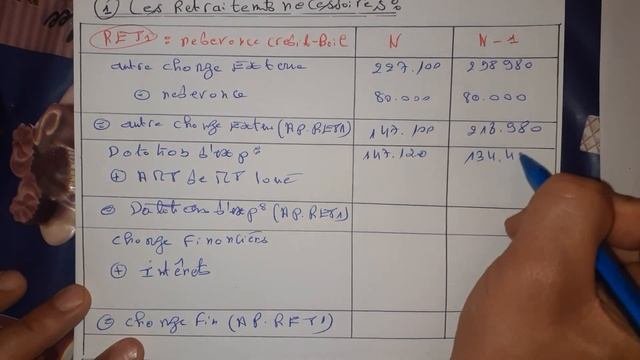 ① Les Retraitements necessaires:
RET1 = redevance crédit-Bail N N-1
autre charge Externe 227.100 298980
⊖ redevance 80.000 80.000
⊜ autre charge Extern (AP.RET1) 147.100 218.980
Dotation d'exp° 147.120 134.4
⊕ AMT de MT loué
⊜ Dotation d'exp° (AP.RET1)
charge Financiers
⊕ Intérêts
⊜ charge Fin (AP.RET1)